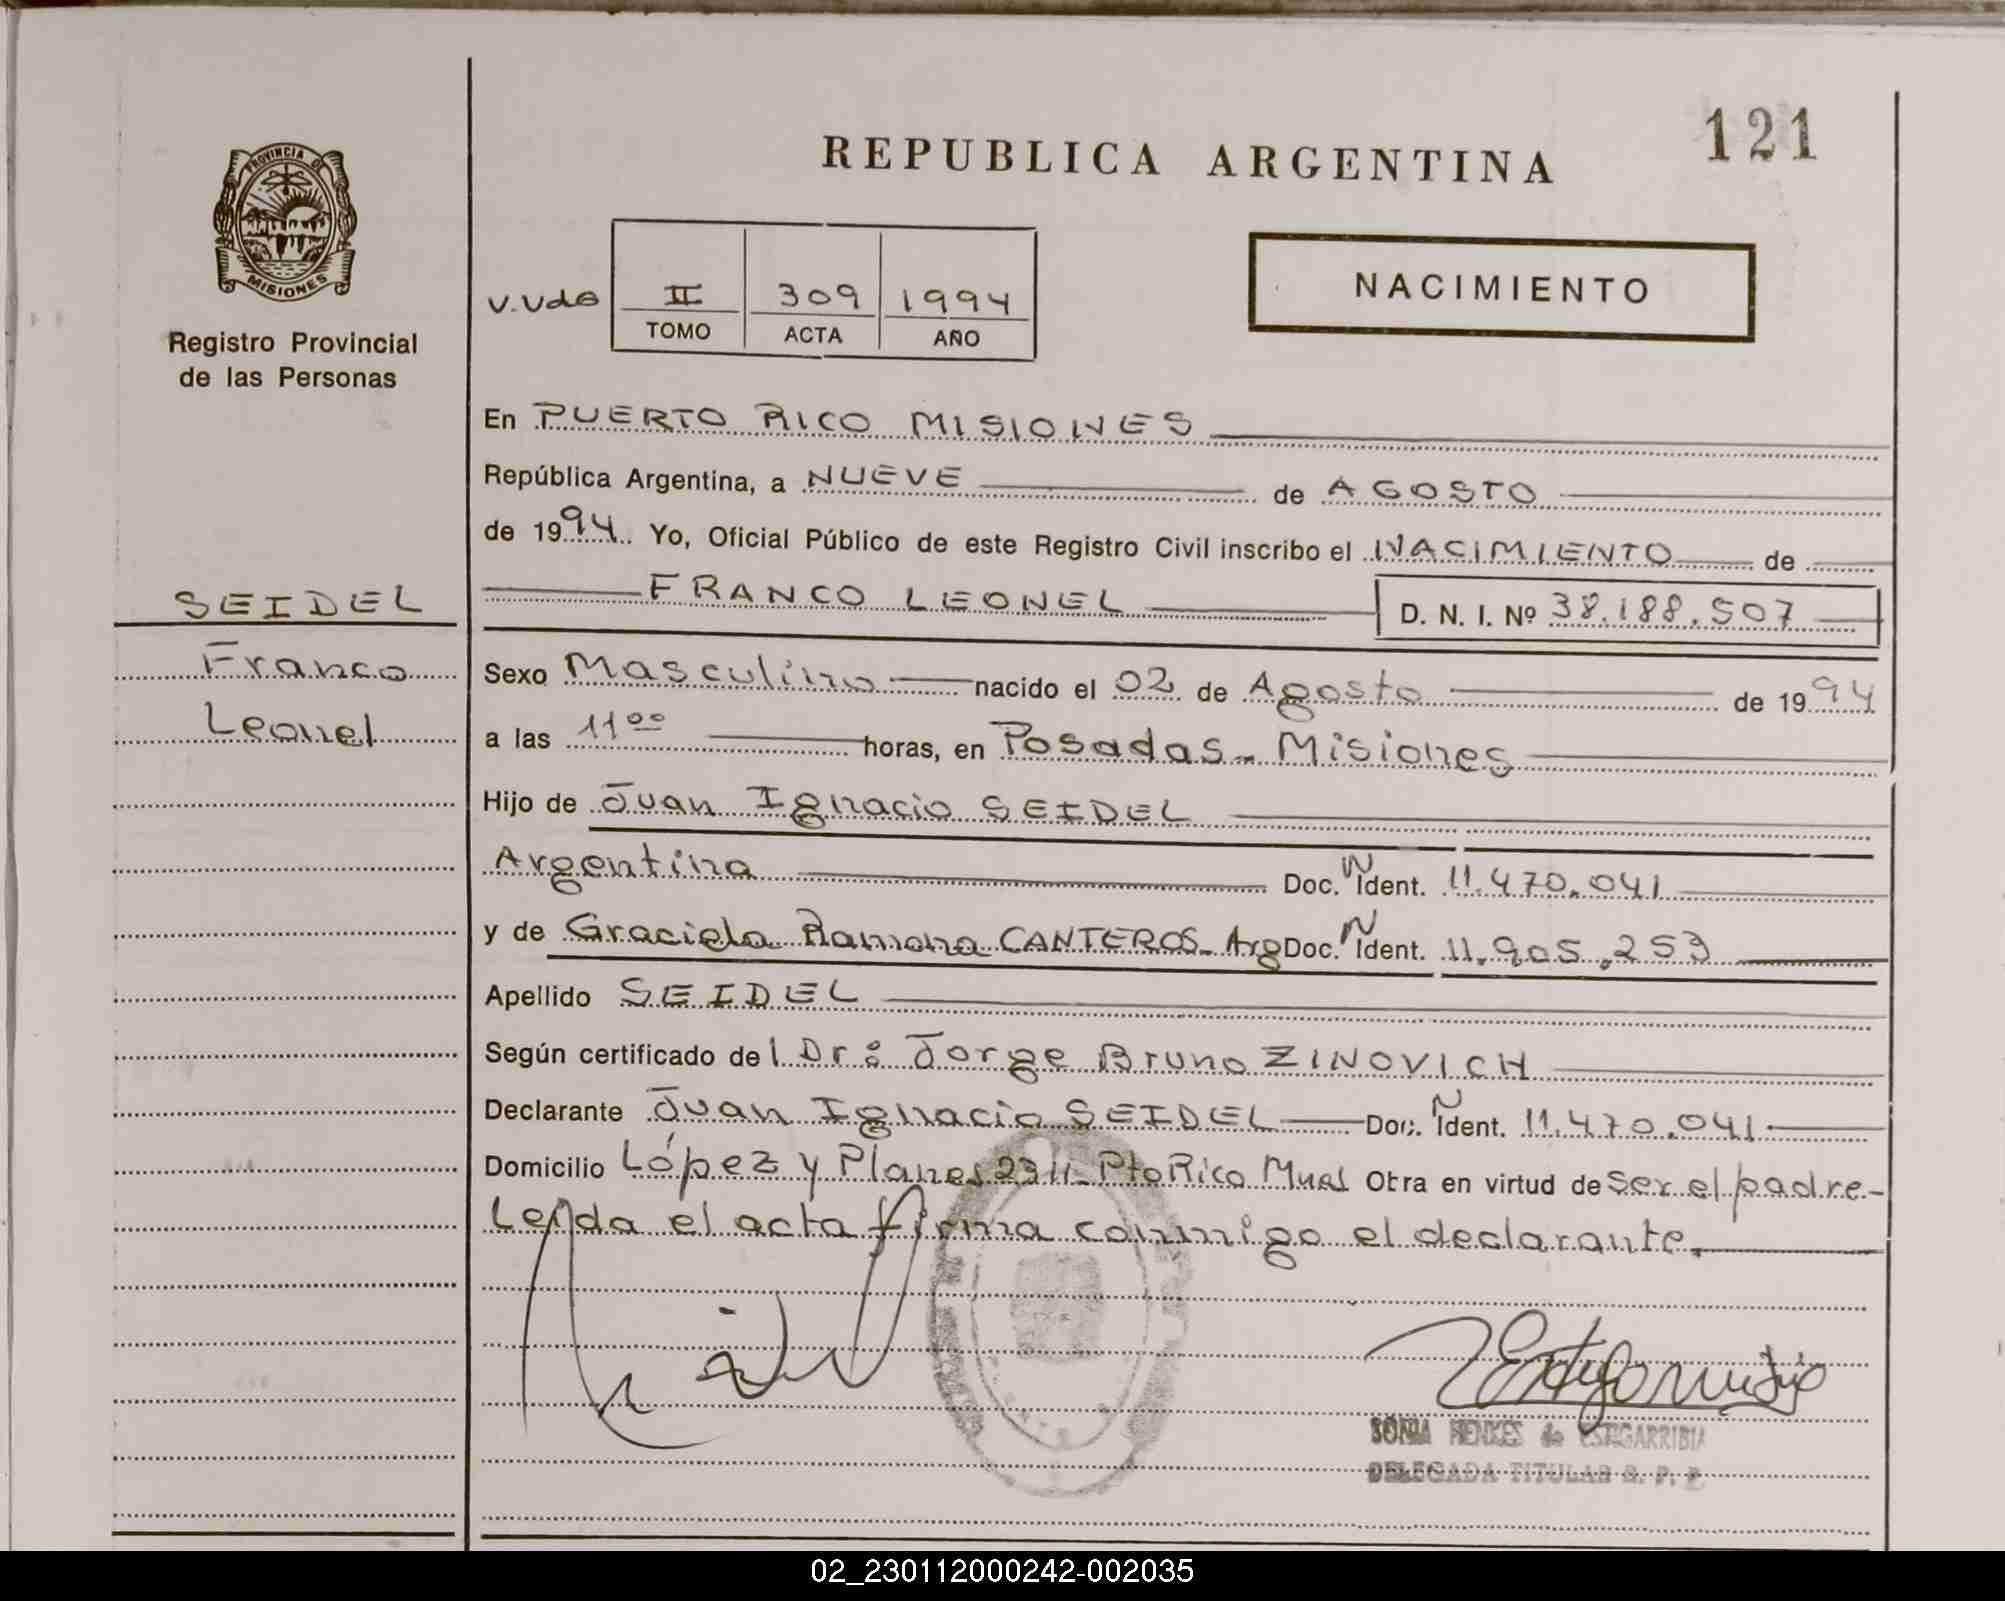 121
REPUBLICA ARGENTINA
PROVINCIA DE
MISIONES
Registro Provincial
de las Personas
NACIMIENTO
II 309 1994
TOMO ACTA AÑO
En PUERTO RICO MISIONES
República Argentina, a NUEVE de AGOSTO
de 1994 Yo, Oficial Público de este Registro Civil inscribo el NACIMIENTO de
SEIDEL
Franco
Leonel
FRANCO LEONEL D. N. I. Nº 38.188.507
Sexo Masculino nacido el 02 de Agosto de 1994
a las 11 00 horas, en Posadas - Misiones
Hijo de Juan Ignacio SEIDEL
Argentina Doc. N Ident. 11.470.041
y de Graciela Ramona CANTEROS - Arg Doc. N Ident. 11.905.253
Apellido SEIDEL
Según certificado del Dr: Jorge Bruno ZINOVICH
Declarante Juan Ignacio SEIDEL Doc. N Ident. 11.470.041
Domicilio López y Planes 2311 - Pto Rico Mnes Obra en virtud de ser el padre -
Leída el acta firma conmigo el declarante.
SONIA HENKES de ESTIGARRIBIA
DELEGADA TITULAR R. P. P.
02_230112000242-002035